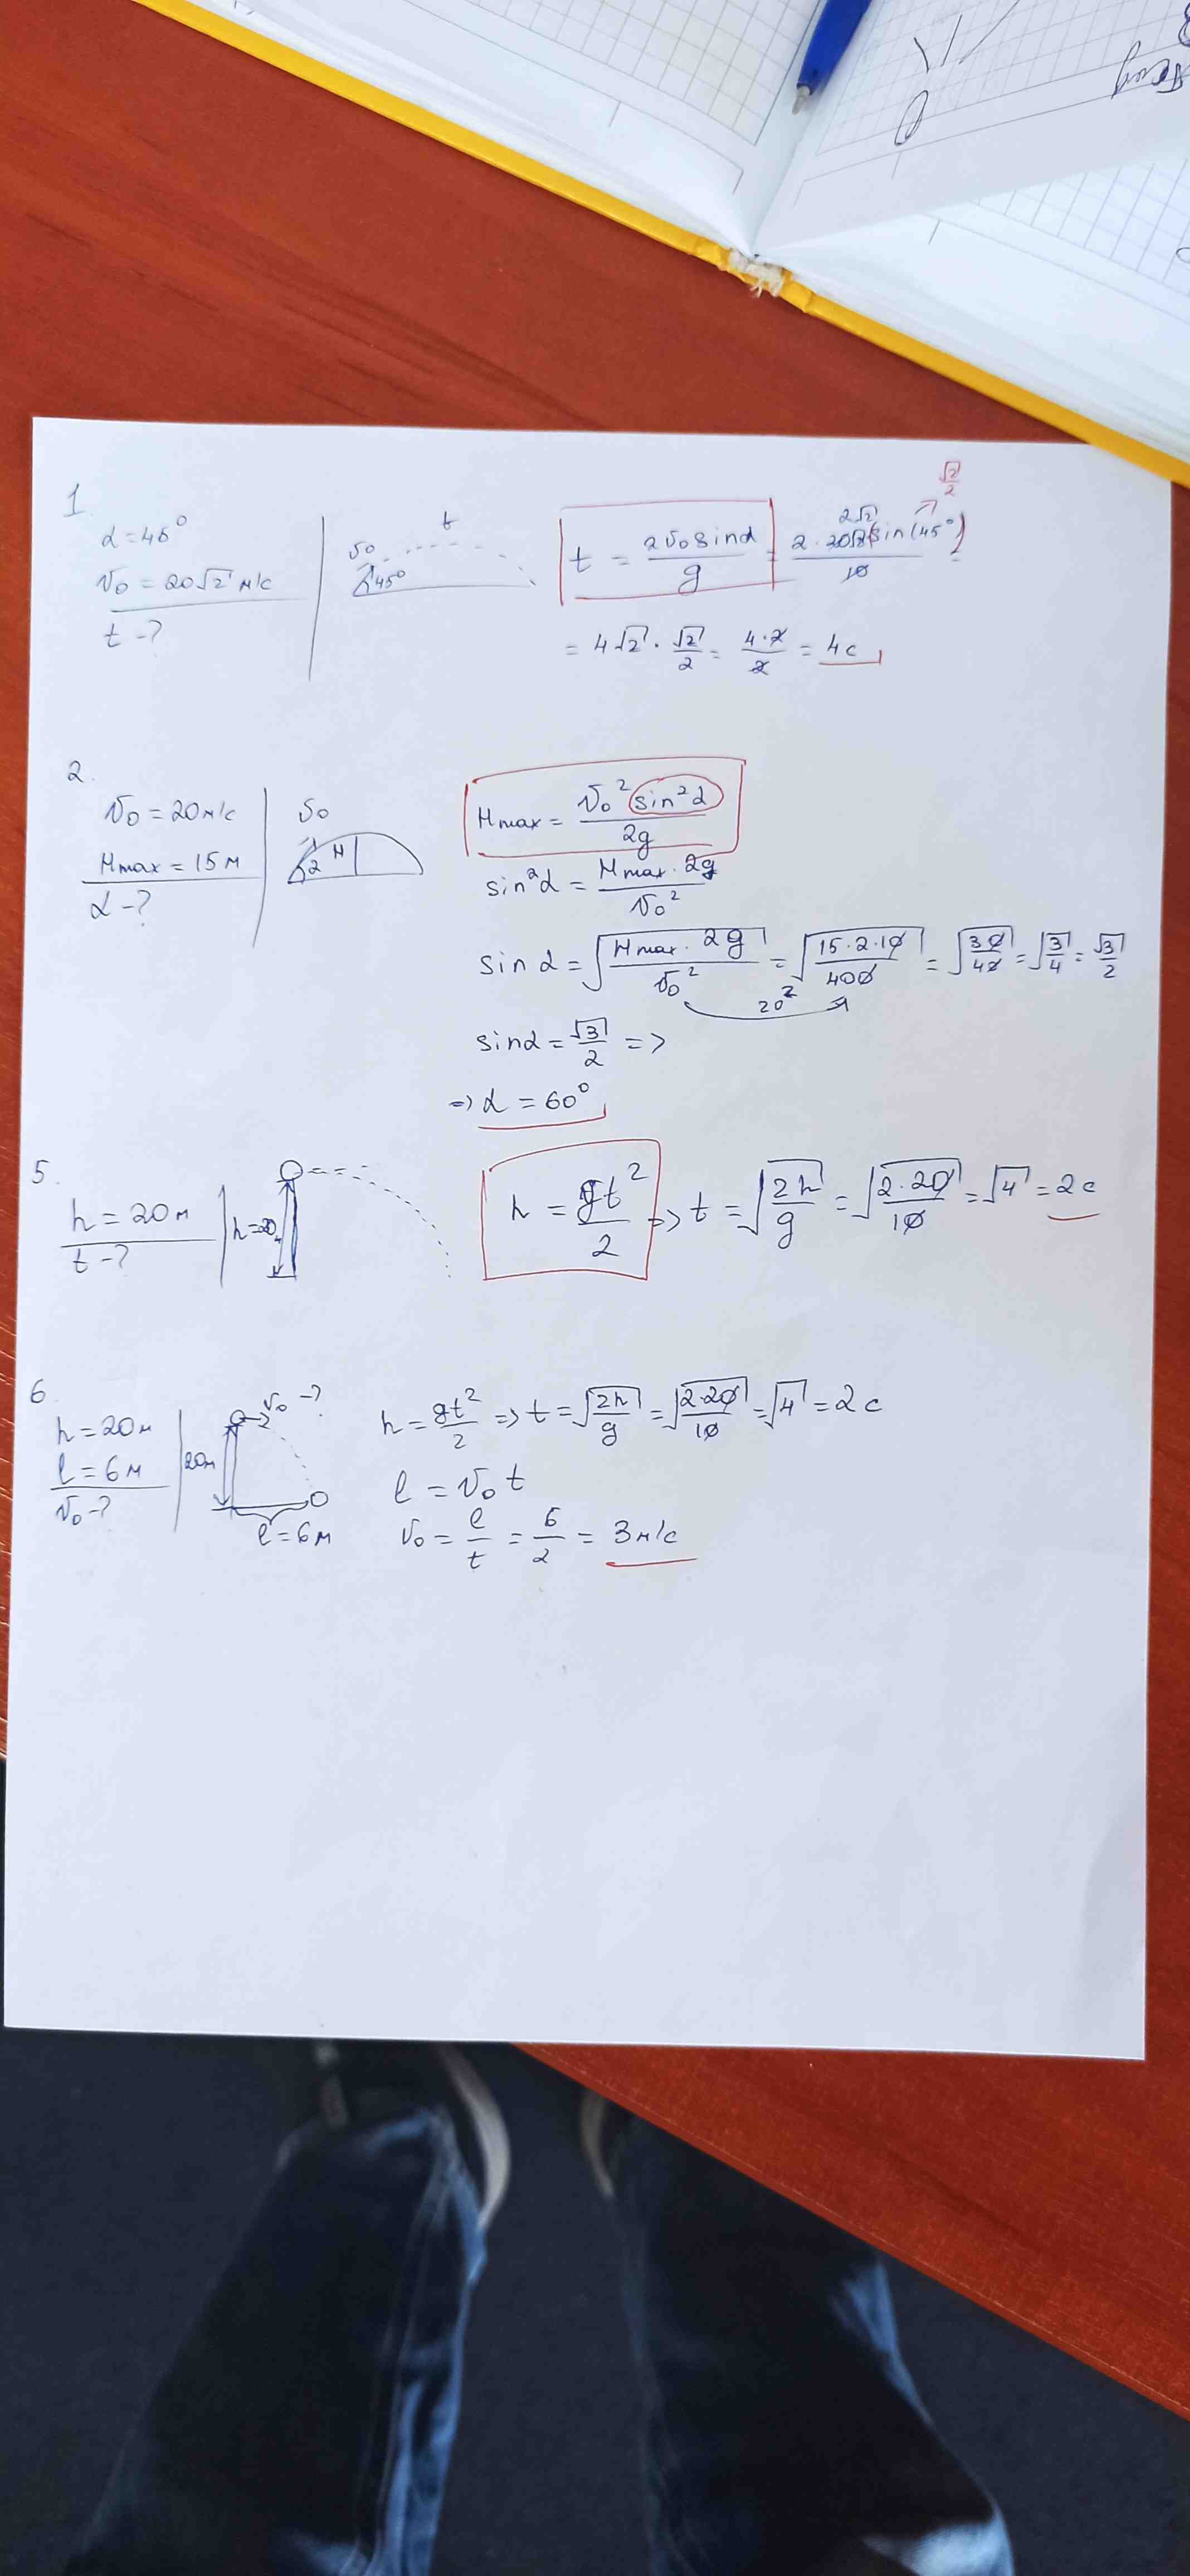 1
α = 45°
v₀ = 20√2 м/с
t - ?
v₀
t
45°
t = 2v₀sinα / g = 2 · 20√2 sin(45°) / 10 =
2√2
√2/2
= 4√2 · √2/2 = 4·2/2 = 4с
2.
v₀ = 20м/с
Hmax = 15м
α - ?
v₀
H
α
Hmax = v₀² sin²α / 2g
sin²α = Hmax · 2g / v₀²
sin α = √(Hmax · 2g / v₀²) = √(15·2·10 / 400) = √(30/40) = √(3/4) = √3/2
20²
sinα = √3/2 =>
=> α = 60°
5.
h = 20м
t - ?
h=20
h = gt²/2 => t = √(2h/g) = √(2·20/10) = √4 = 2с
6
h = 20м
l = 6м
v₀ - ?
v₀ - ?
20м
l = 6м
h = gt²/2 => t = √(2h/g) = √(2·20/10) = √4 = 2с
l = v₀ t
v₀ = l/t = 6/2 = 3м/с